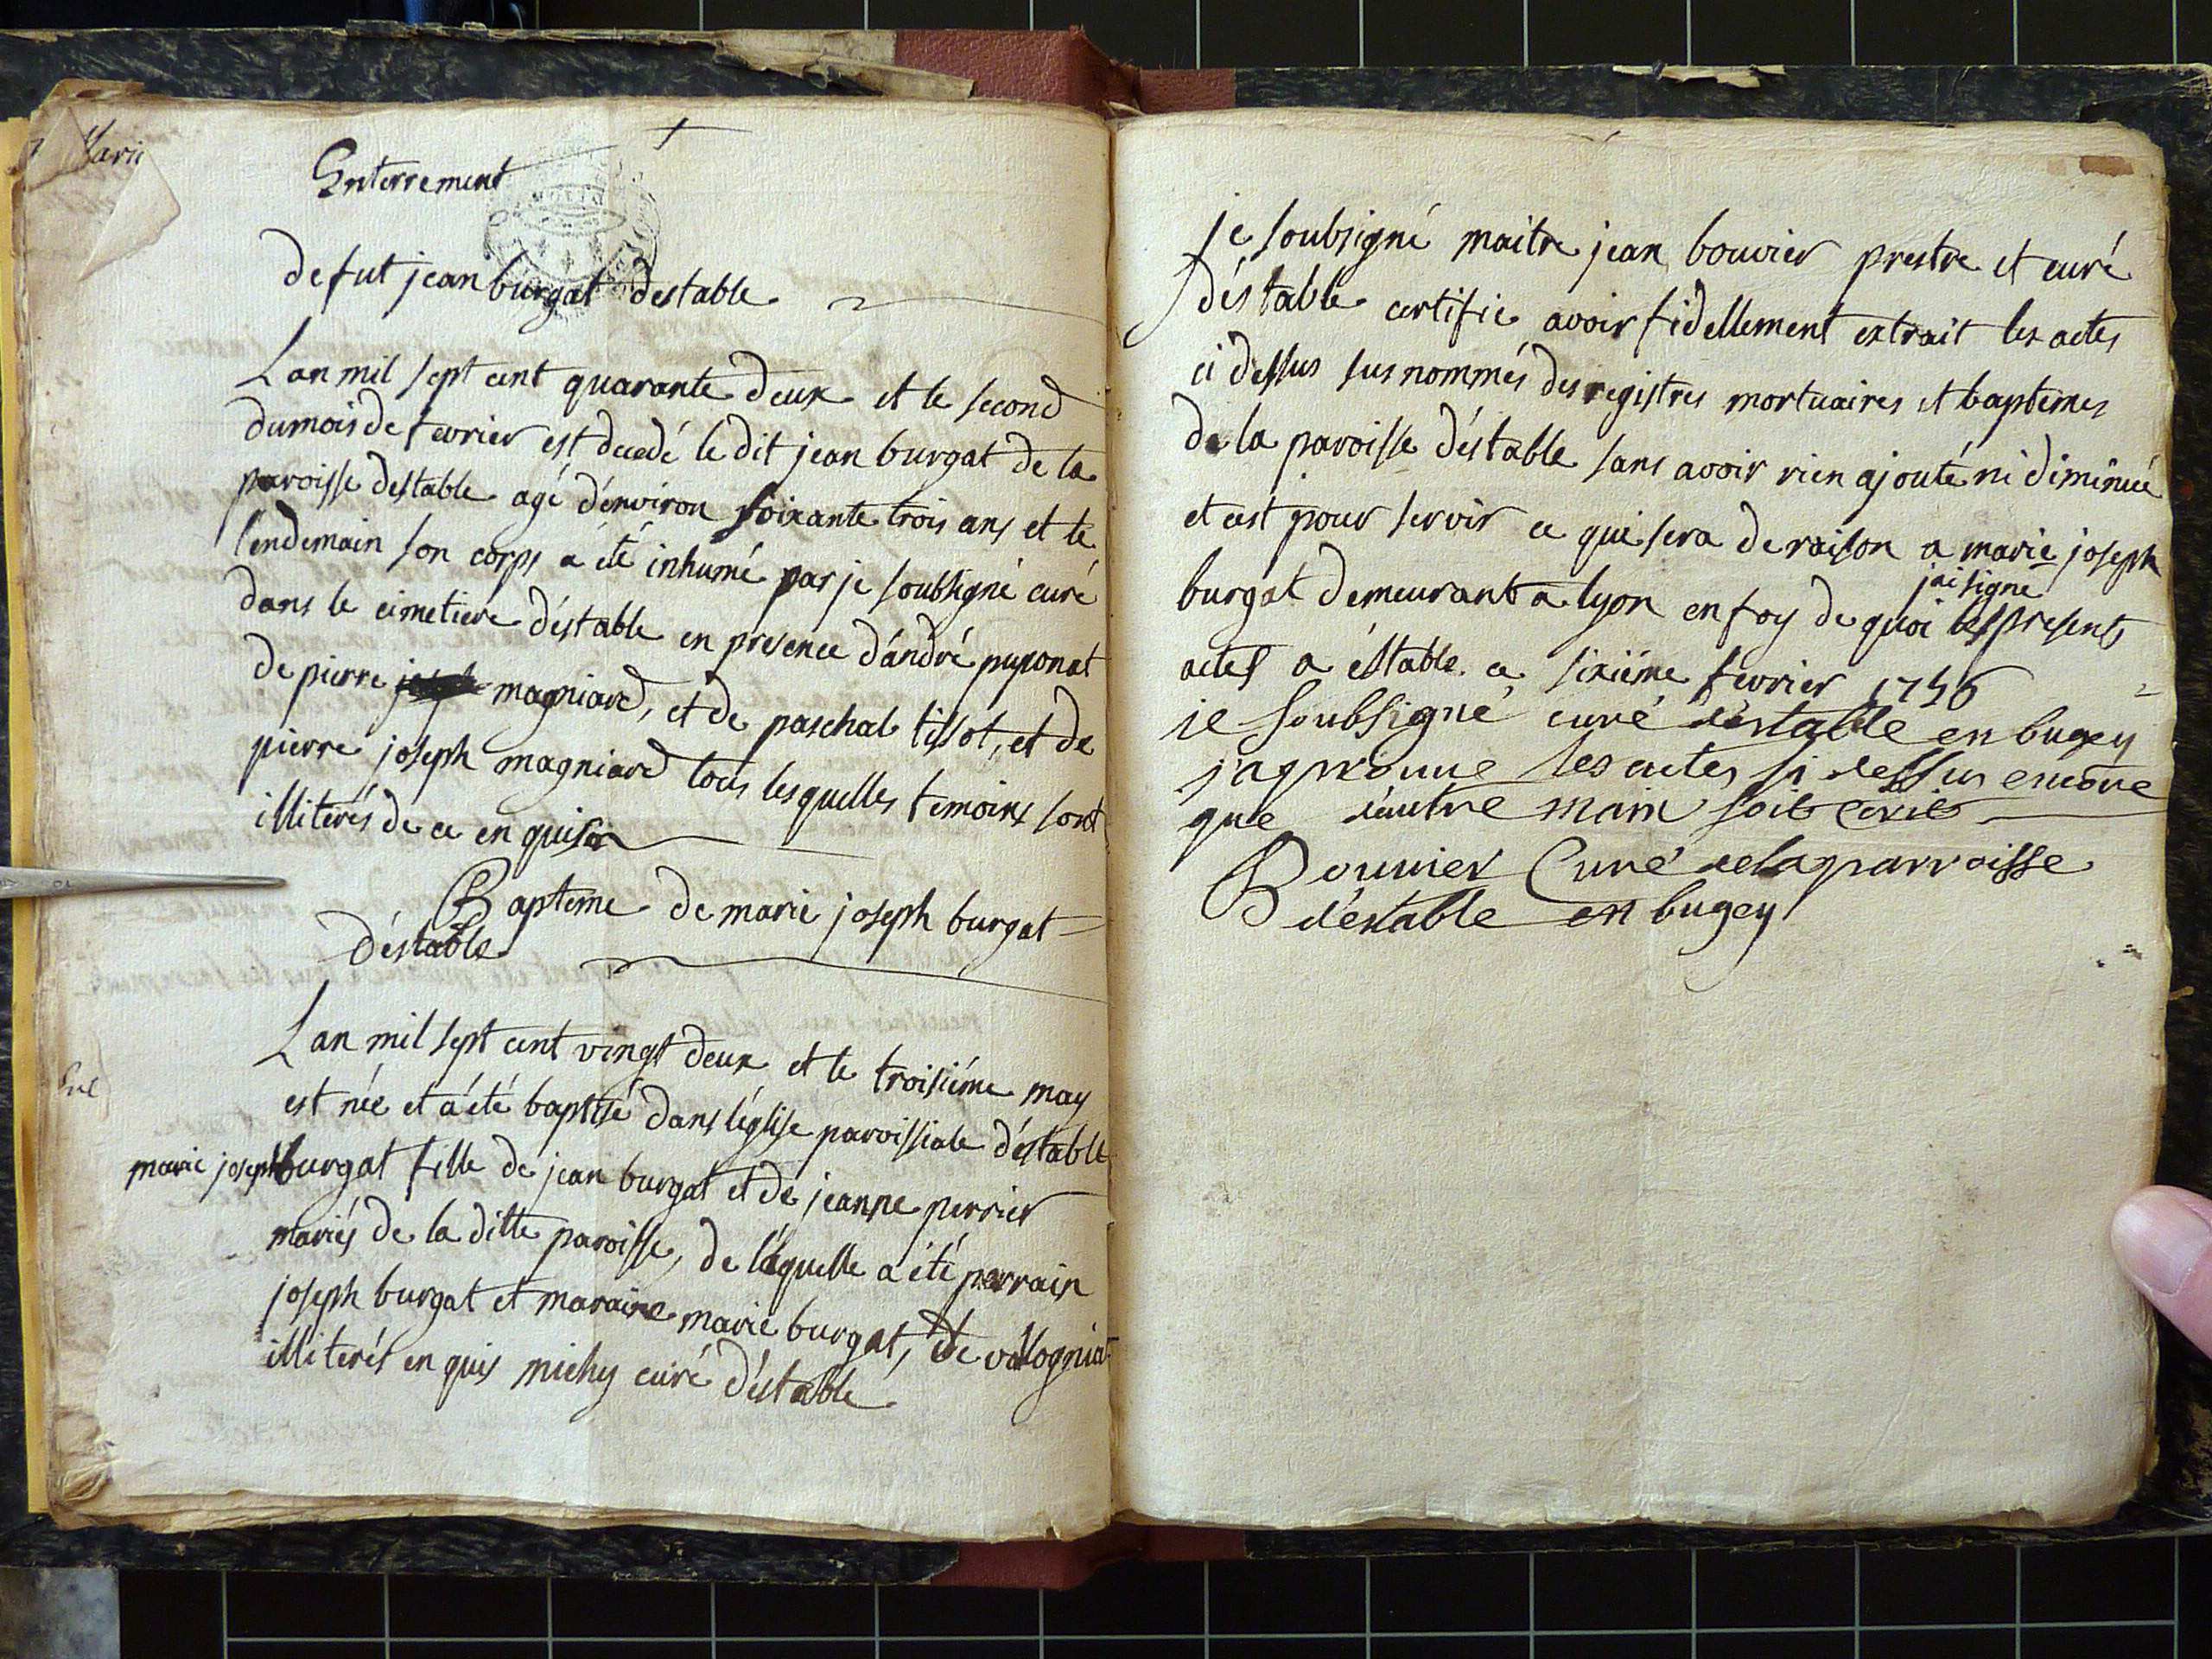 Marie
Enterrement
de fut jean burgat destable
Lan mil sept cent quarante deux et le second
du mois de fevrier est decedé le dit jean burgat de la
paroisse destable agé d'environ soixante trois ans et le
lendemain son corps a été inhumé par je soubsigné curé
dans le cimetiere d'éstable en presence d'andré puponat
de pierre magniard, et de paschal tissot, et de
pierre joseph magniard tous lesquelles temoins sont
illiterés de ce en quis
Bapteme de marie joseph burgat
d'éstable
Lan mil sept cent vingt deux et le troisiéme may
est née et a été baptisé dans léglise paroissiale d'éstable
marie joseph burgat fille de jean burgat et de jeanne perrier
mariés de la ditte paroisse, de laquelle a été parrain
joseph burgat et maraine marie burgat, de volognia
illiterés en quis michy curé d'éstable
je soubsigné maitre jean bouvier prestre et curé
d'éstable certifie avoir fidellement extrait les actes
ci dessus sus nommés des registres mortuaires et baptemes
de la paroisse d'éstable sans avoir rien ajouté ni diminué
et cest pour servir ce qui sera de raison a marie joseph
burgat demeurant a lyon en foy de quoi jai signé les presents
actes a éstable ce sixiéme fevrier 1756
je soubsigné curé d'estable en bugey
j'aprouue les actes si dessus encore
que d'autre main soit ecrit
Bouuier Curé de la parroisse
d'estable en bugey